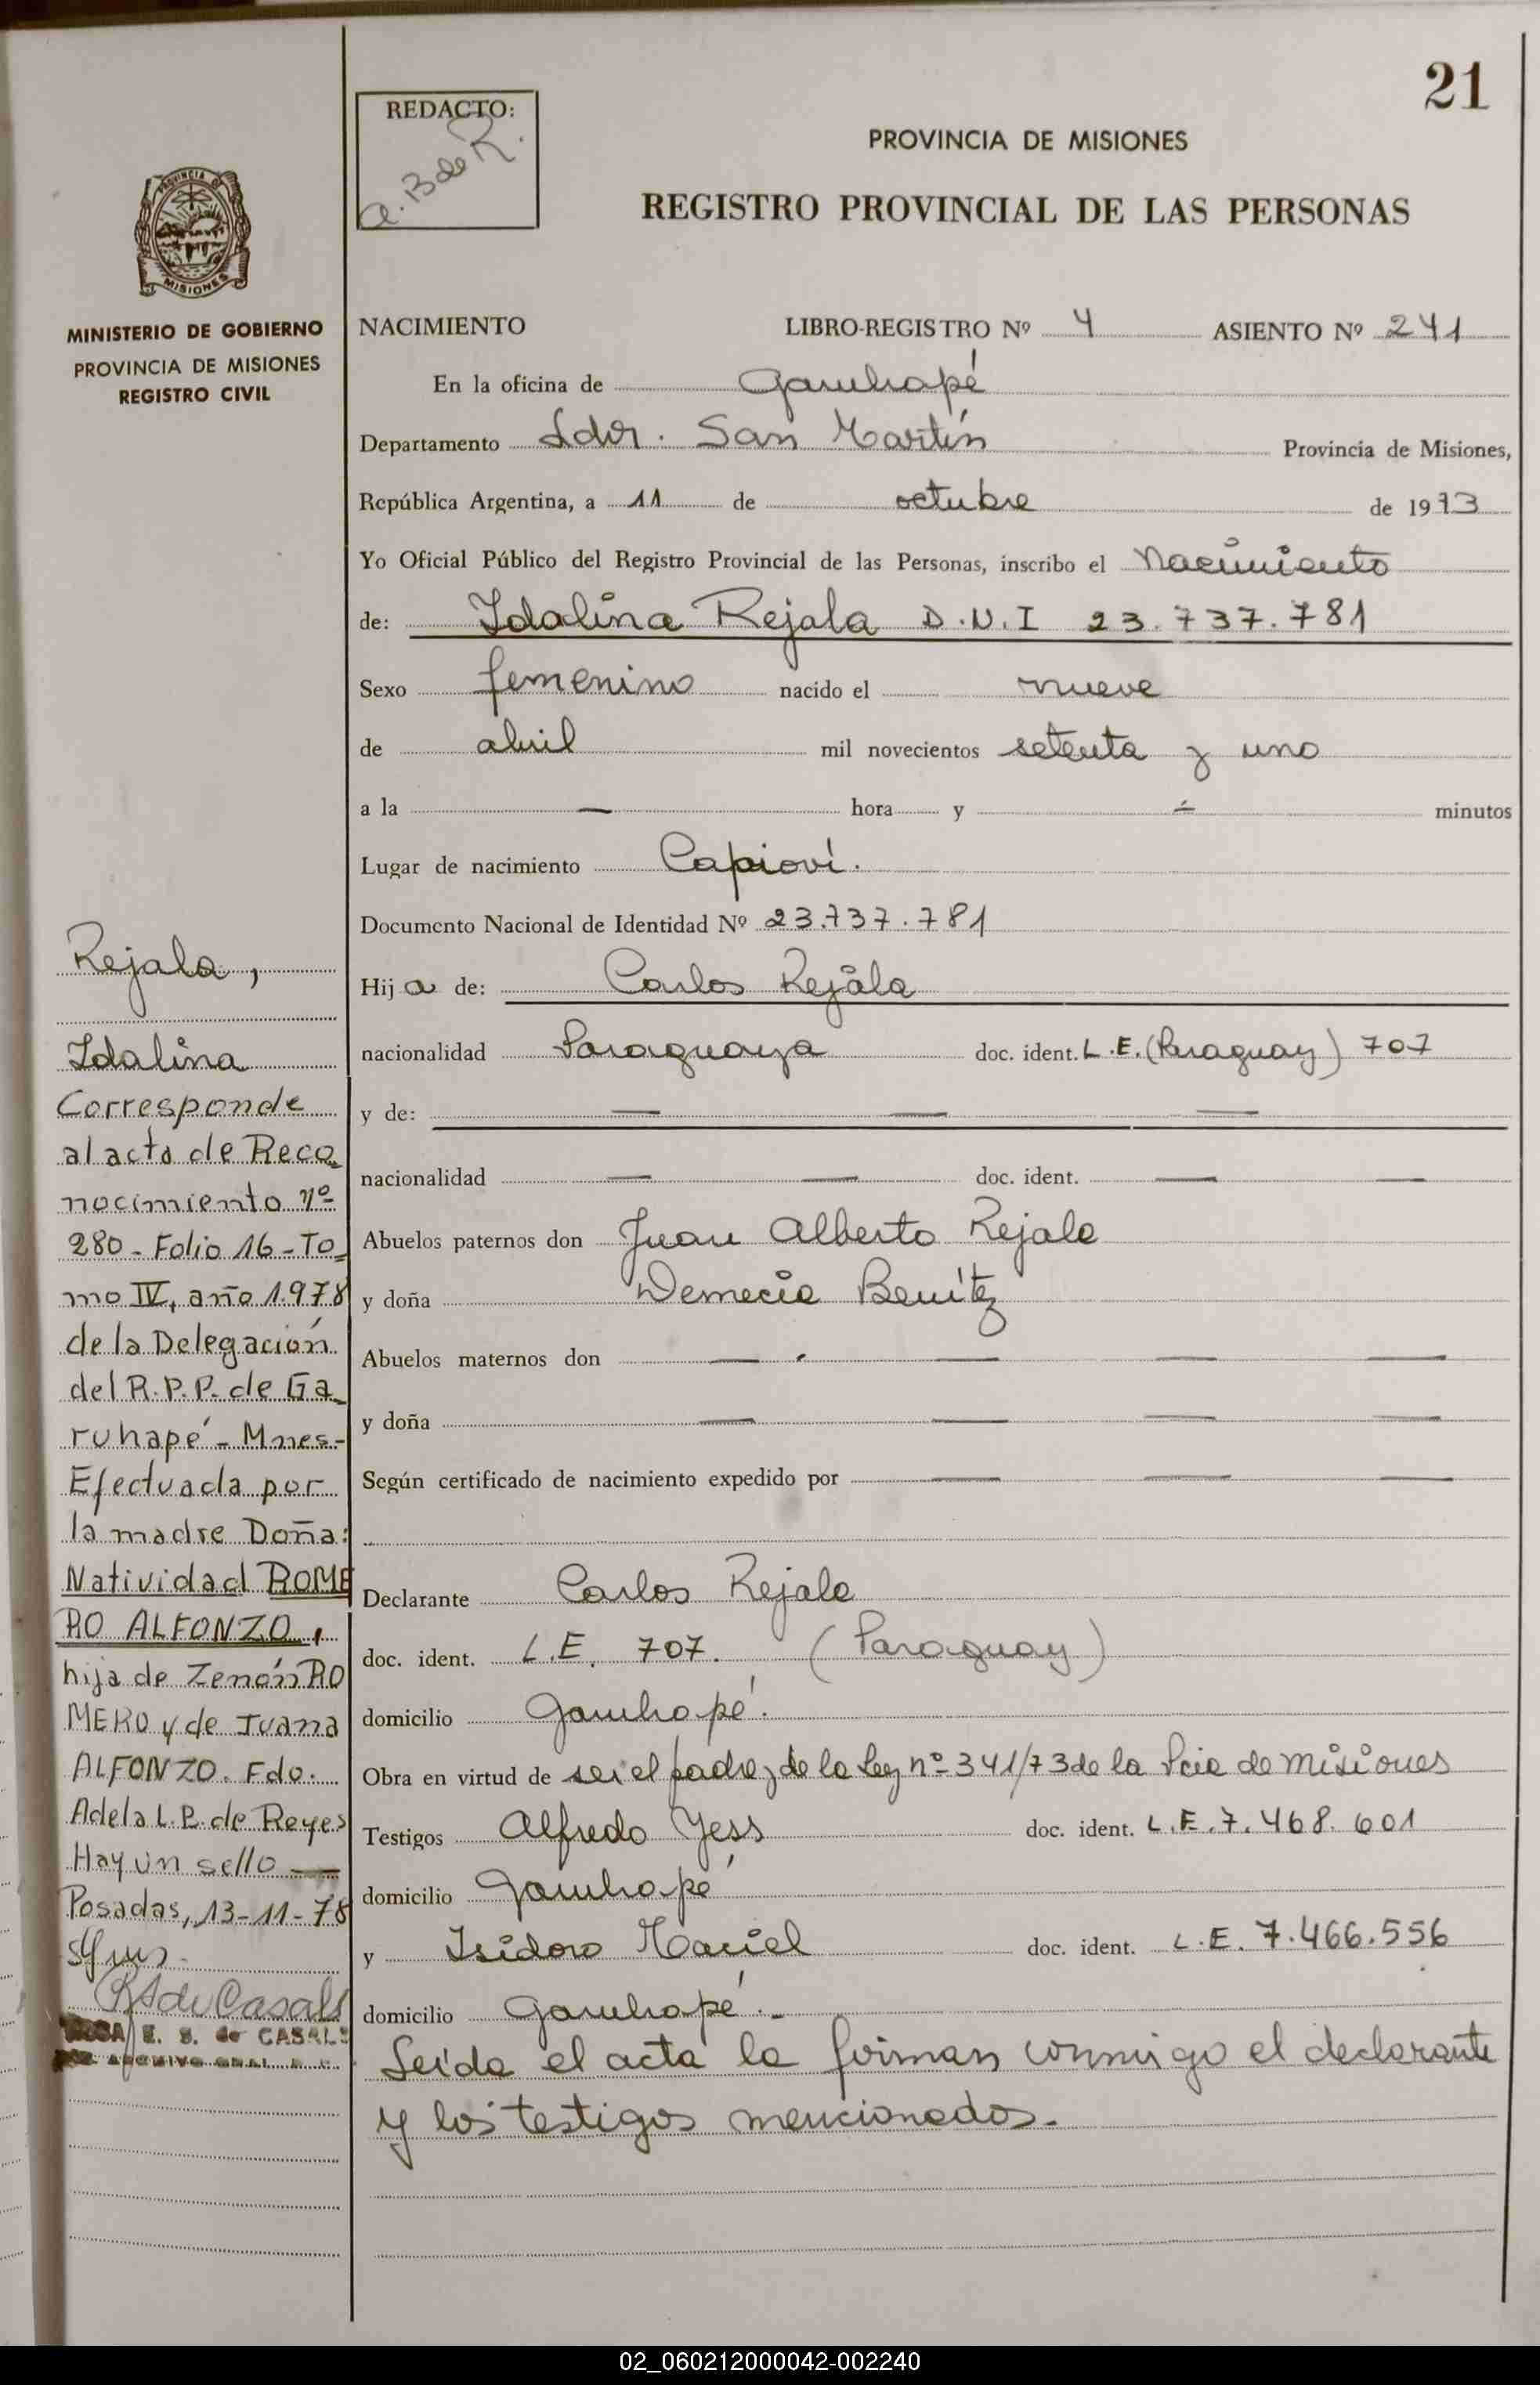 21
REDACTO:
a. B de R.
PROVINCIA DE MISIONES
REGISTRO PROVINCIAL DE LAS PERSONAS
PROVINCIA DE
MISIONES
MINISTERIO DE GOBIERNO
PROVINCIA DE MISIONES
REGISTRO CIVIL
NACIMIENTO LIBRO-REGISTRO Nº 4 ASIENTO Nº 241
En la oficina de Garuhapé
Departamento Ldor. San Martín Provincia de Misiones,
República Argentina, a 11 de octubre de 1973
Yo Oficial Público del Registro Provincial de las Personas, inscribo el Nacimiento
de: Idalina Rejala D.N.I 23.737.781
Sexo femenino nacido el nueve
de abril mil novecientos setenta y uno
a la — hora y — minutos
Lugar de nacimiento Capioví.
Documento Nacional de Identidad Nº 23.737.781
Hija de: Carlos Rejala
nacionalidad Paraguaya doc. ident. L.E. (Paraguay) 707
y de: — — —
nacionalidad — — doc. ident. — —
Abuelos paternos don Juan Alberto Rejala
y doña Demecia Benítez
Abuelos maternos don — — — —
y doña — — — —
Según certificado de nacimiento expedido por — — —
Declarante Carlos Rejala
doc. ident. L.E. 707. (Paraguay)
domicilio Garuhapé.
Obra en virtud de ser el padre y de la Ley nº 341/73 de la Pcia de Misiones
Testigos Alfredo Yess doc. ident. L.E. 7.468.601
domicilio Garuhapé
y Isidoro Maciel doc. ident. L.E. 7.466.556
domicilio Garuhapé.-
Leída el acta la firman conmigo el declarante
y los testigos mencionados.-
Rejala,
Idalina
Corresponde
al acta de Reco
nocimiento nº
280 - Folio 16 - To
mo IV, año 1.978
de la Delegación
del R.P.P. de Ga
ruhapé - Mnes-
Efectuada por
la madre Doña:
Natividad ROME
RO ALFONZO,
hija de Zenón RO
MERO y de Juana
ALFONZO. Fdo.
Adela L.B. de Reyes
Hay un sello —
Posadas, 13-11-78
RS de Casals
ROSA E. S. de CASALS
ARCHIVO GRAL. R. C.
02_060212000042-002240